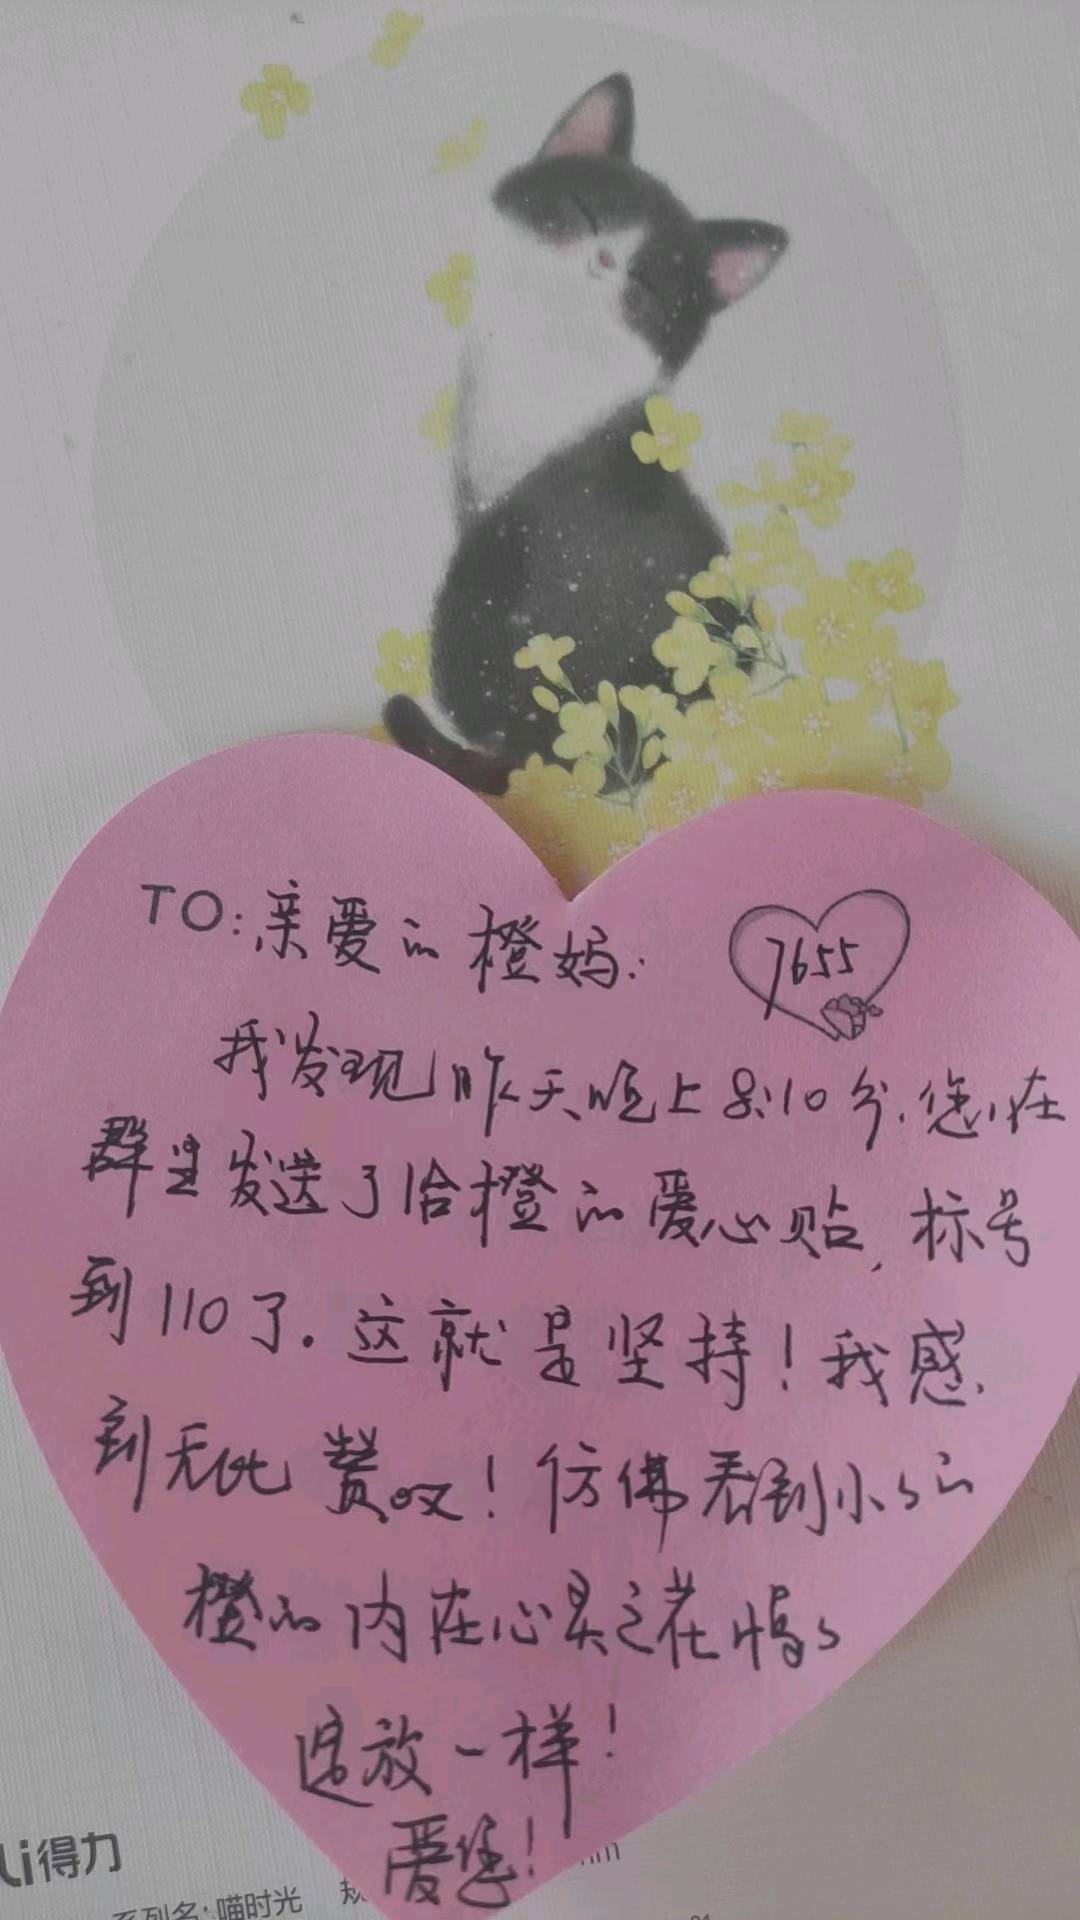 TO:亲爱的橙妈:
7655
我发现昨天晚上8:10分.您在
群里发送了给橙的爱心贴,标号
到110了.这就是坚持!我感
到无比赞叹!仿佛看到小小的
橙的内在心灵之花悄悄
绽放一样!
爱您!
Li得力
系列名:喵时光 规
mm